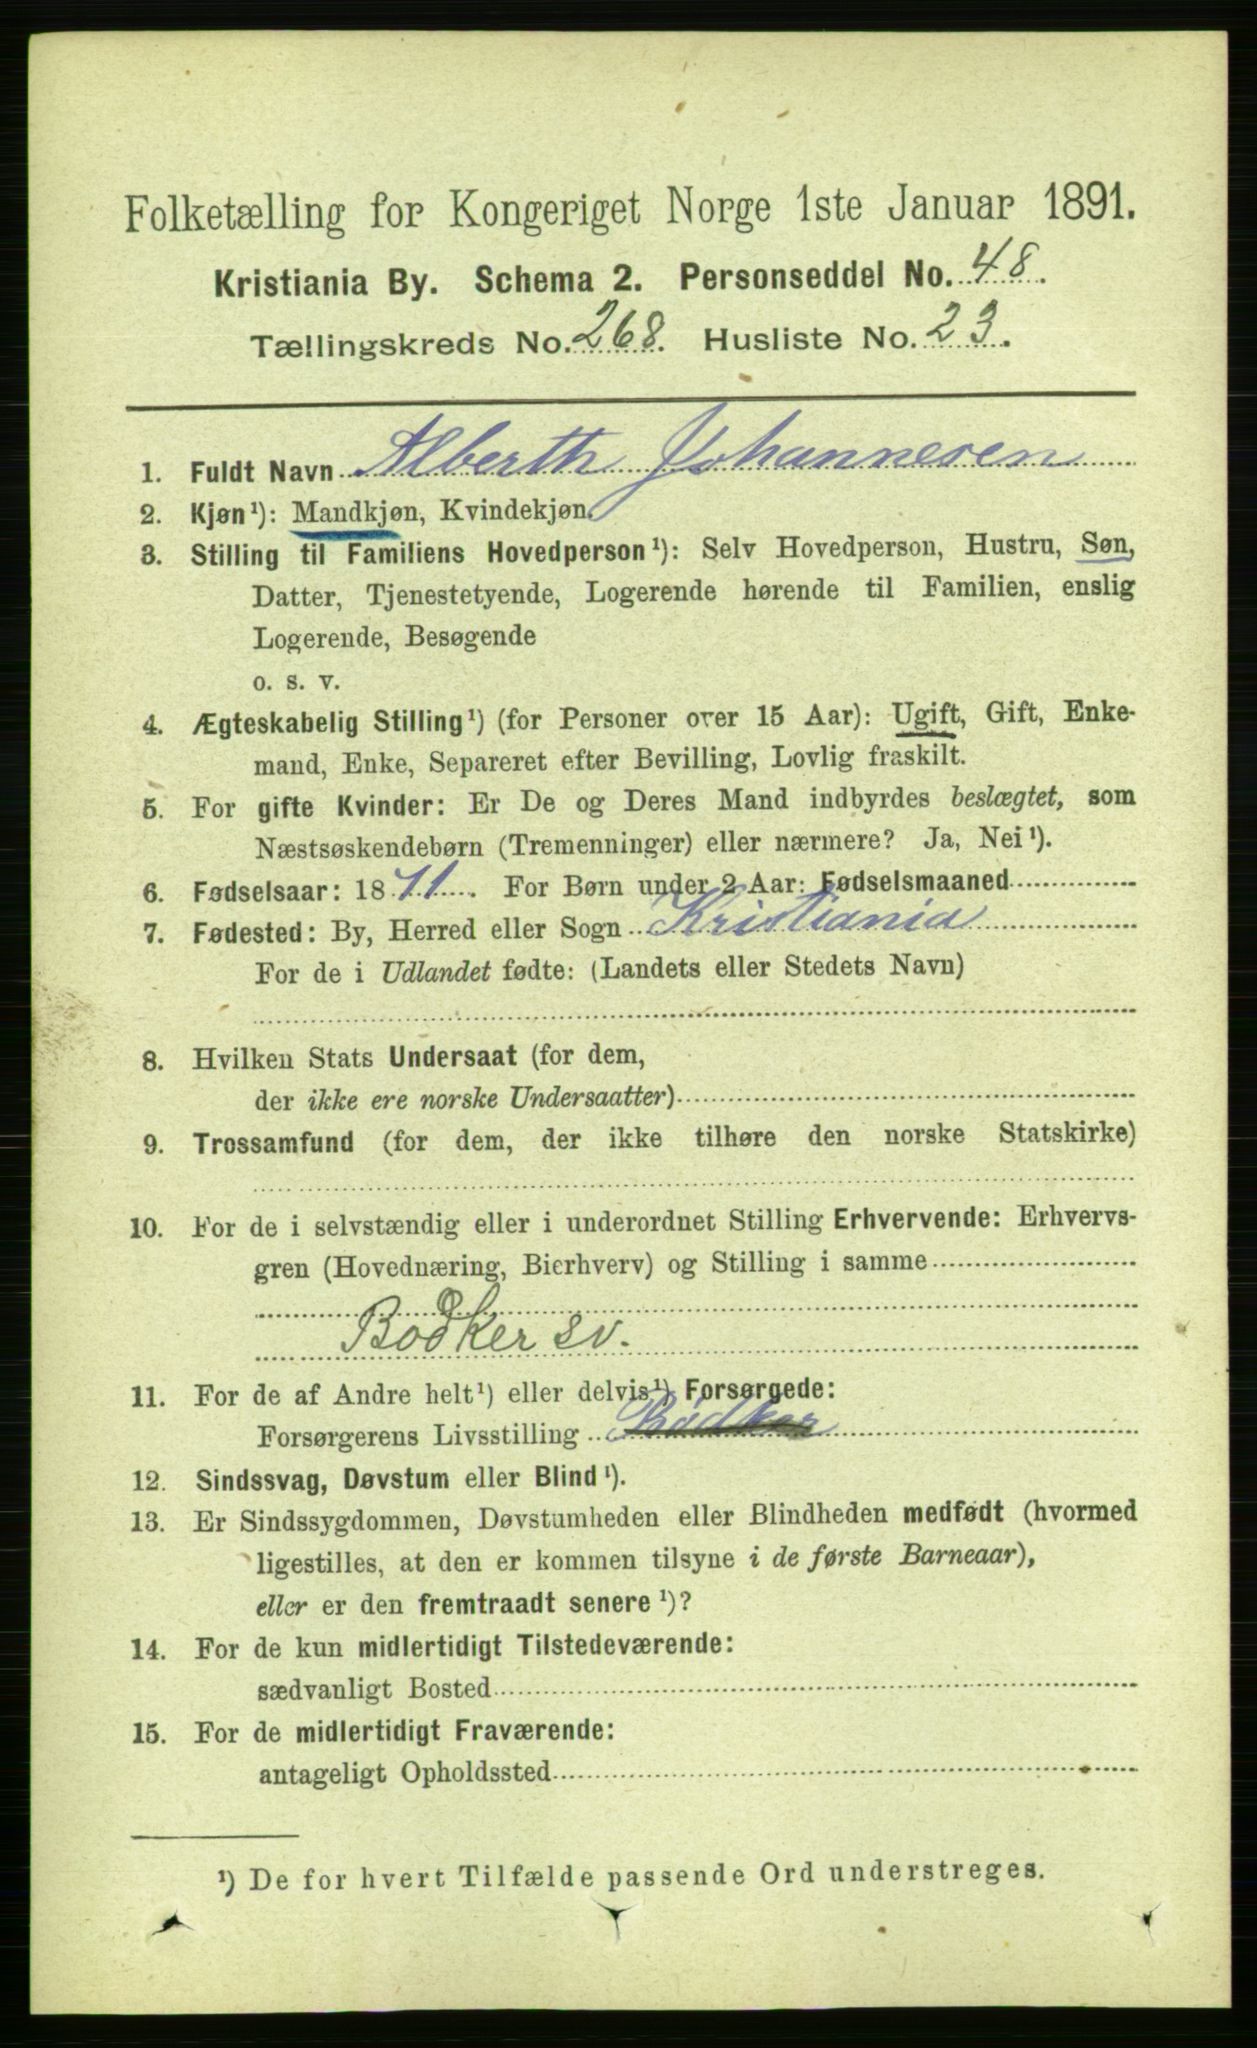 Folketælling for Kongeriget Norge 1ste Januar 1891.
Kristiania By. Schema 2. Personseddel No. 48.
Tællingskreds No. 268. Husliste No. 23.
1. Fuldt Navn Alberth Johannesen
2. Kjøn¹): Mandkjøn, Kvindekjøn.
3. Stilling til Familiens Hovedperson¹): Selv Hovedperson, Hustru, Søn,
Datter, Tjenestetyende, Logerende hørende til Familien, enslig
Logerende, Besøgende
o. s. v.
4. Ægteskabelig Stilling¹) (for Personer over 15 Aar): Ugift, Gift, Enke-
mand, Enke, Separeret efter Bevilling, Lovlig fraskilt.
5. For gifte Kvinder: Er De og Deres Mand indbyrdes beslægtet, som
Næstsøskendebørn (Tremenninger) eller nærmere? Ja, Nei¹).
6. Fødselsaar: 1871. For Børn under 2 Aar: Fødselsmaaned
7. Fødested: By, Herred eller Sogn Kristiania
For de i Udlandet fødte: (Landets eller Stedets Navn)
8. Hvilken Stats Undersaat (for dem,
der ikke ere norske Undersaatter)
9. Trossamfund (for dem, der ikke tilhøre den norske Statskirke)
10. For de i selvstændig eller i underordnet Stilling Erhvervende: Erhvervs-
gren (Hovednæring, Bierhverv) og Stilling i samme
Bødker sv.
11. For de af Andre helt¹) eller delvis¹) Forsørgede:
Forsørgerens Livsstilling Bødker
12. Sindssvag, Døvstum eller Blind¹).
13. Er Sindssygdommen, Døvstumheden eller Blindheden medfødt (hvormed
ligestilles, at den er kommen tilsyne i de første Barneaar),
eller er den fremtraadt senere¹)?
14. For de kun midlertidigt Tilstedeværende:
sædvanligt Bosted
15. For de midlertidigt Fraværende:
antageligt Opholdssted
¹) De for hvert Tilfælde passende Ord understreges.